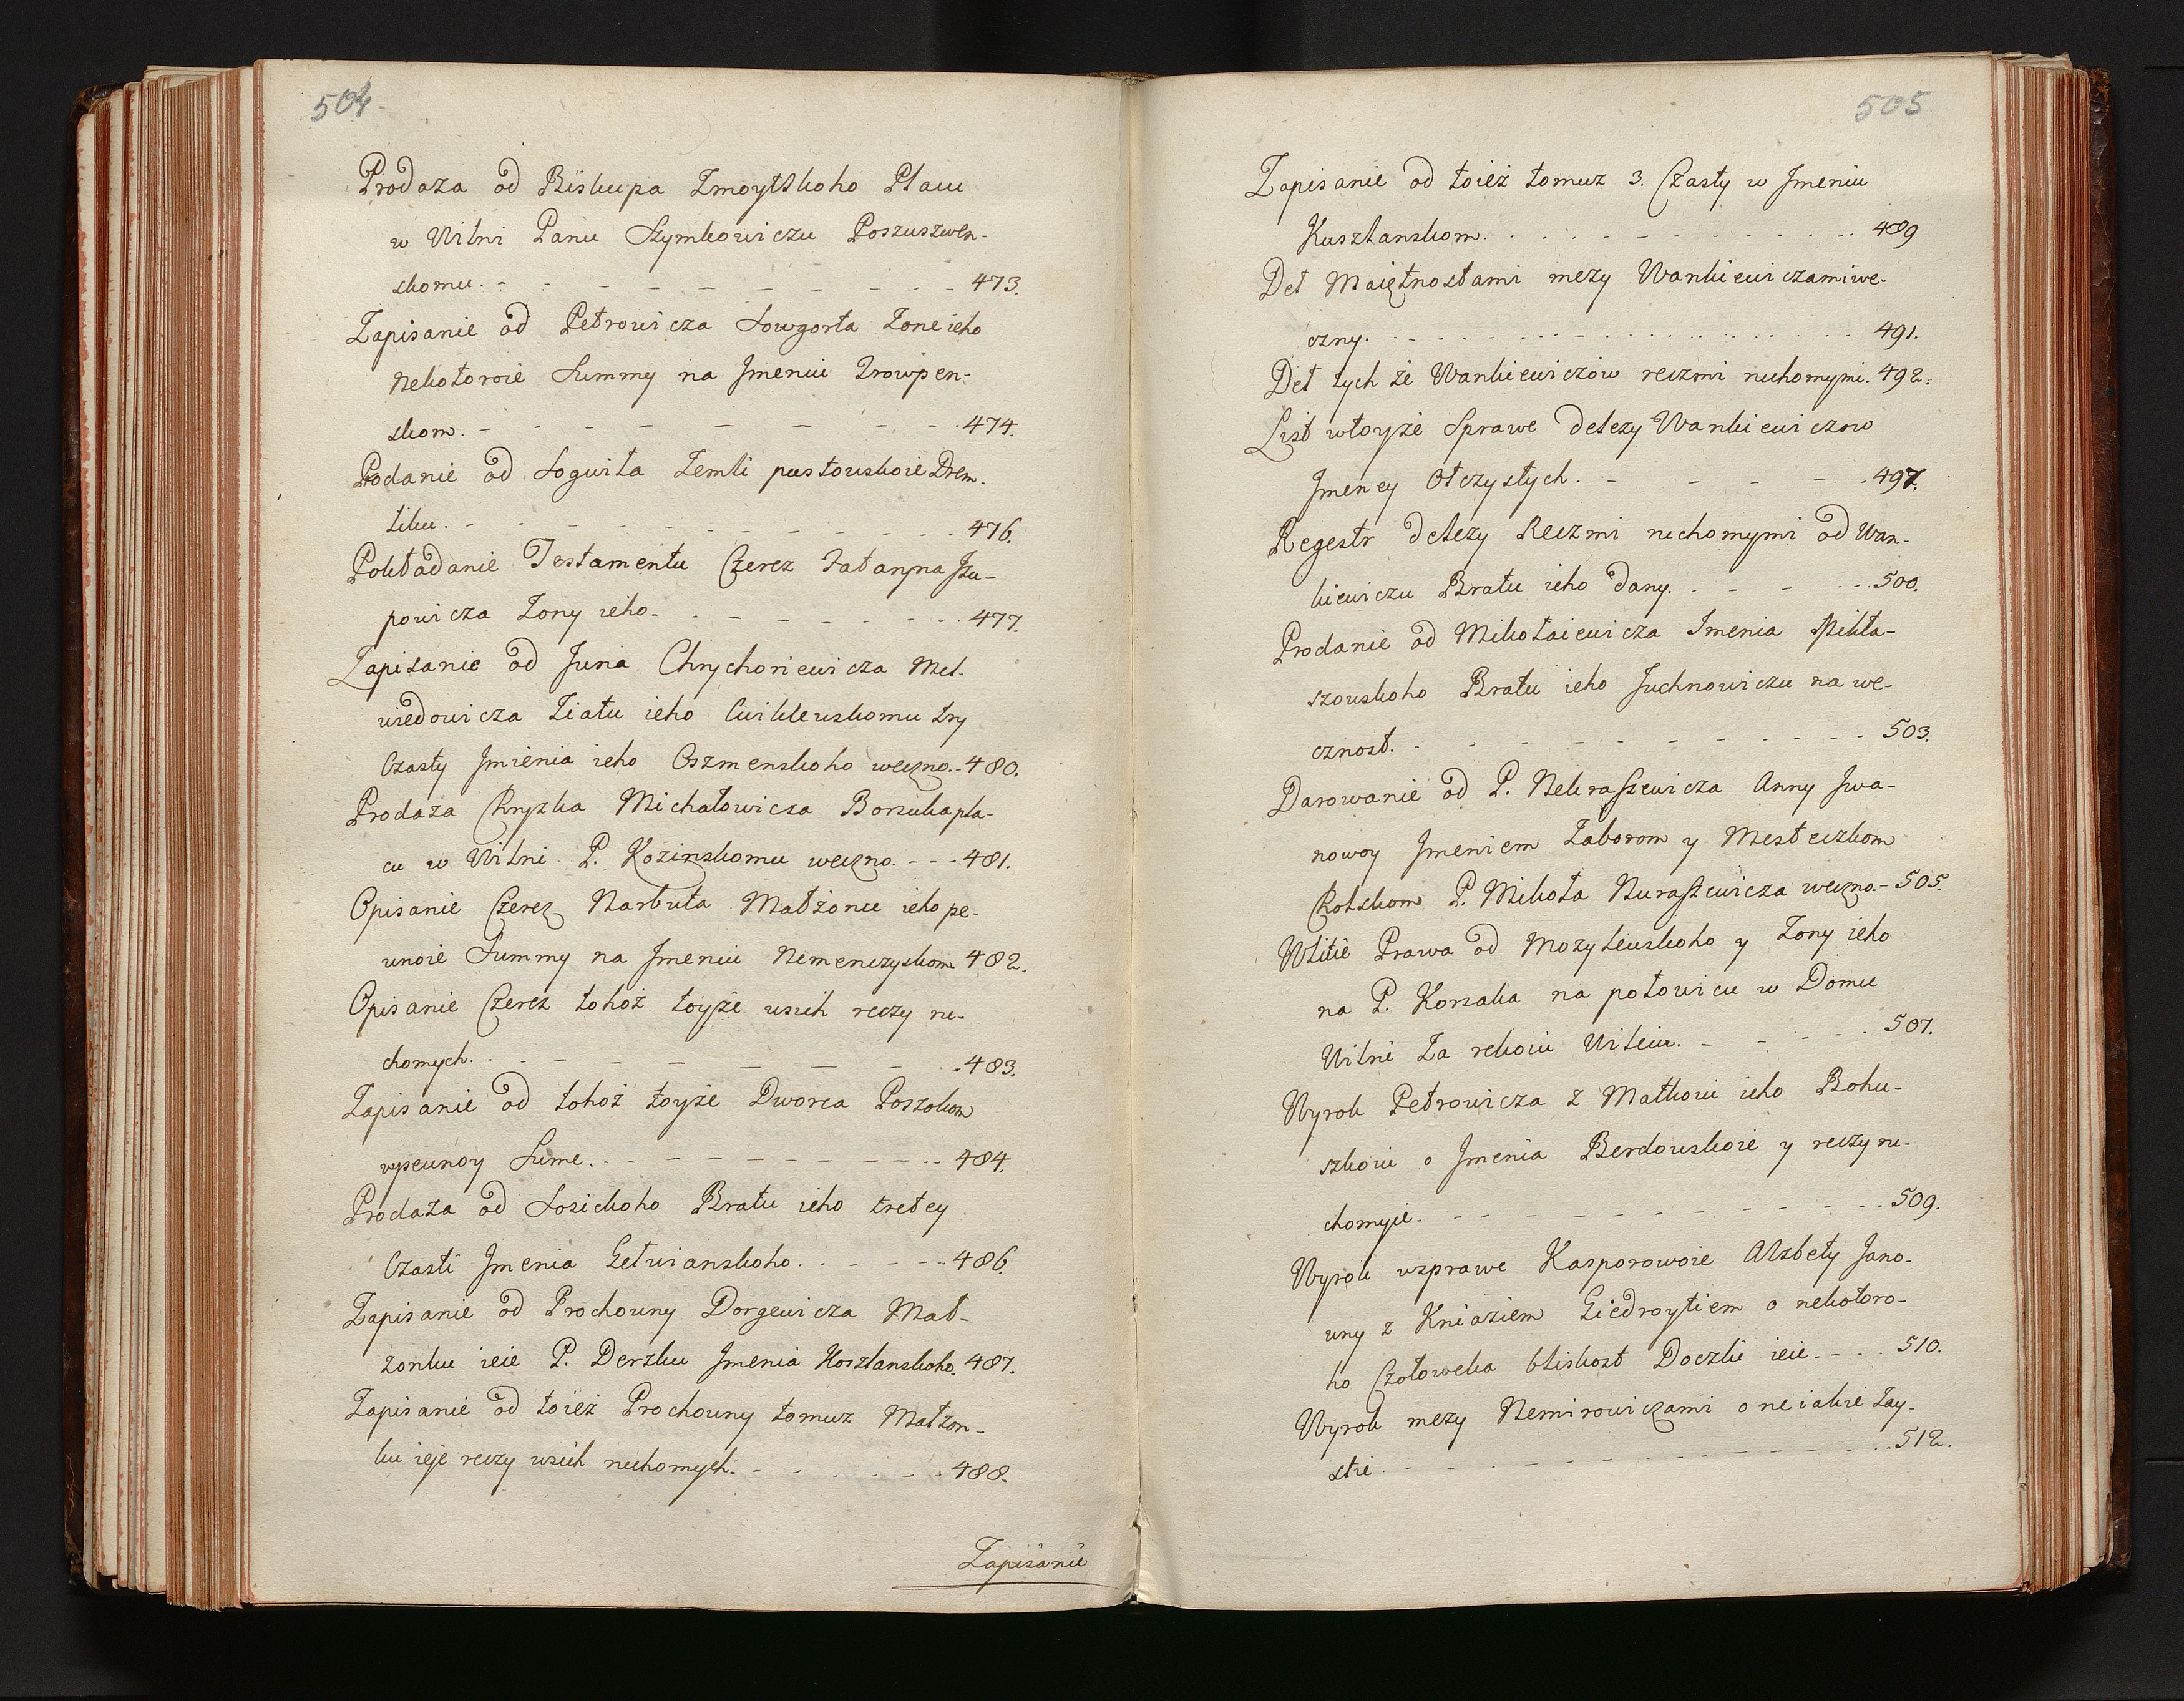 504.
Prodaża od Biskupa Żmoytskoho Placu
w Wilni Panu Szymkowiczu Poszuszwen-
skomu. 473.
Zapisanie od Petrowicza Dowgorta Żone ieho
Nekotoroie Summy na Jmeniu Trowpen-
skom. 474.
Prodanie od Dogwiła Zemli pustowskoie Drem-
liku. 476.
Pokładanie Testamentu Czerez
powicza Żony ieho. 477.
Zapisanie od Juria Chrychoriewicza Mel-
wiedowicza Ziatu ieho try
Czasty Jmienia ieho Oszmenskoho weczno. 480.
Prodaża Chryzka Michałowicza Borzuka pla-
cu w Wilni P. Kozinskomu weczno. 481.
Opisanie Czerez Narbuta Małżonce ieho pe-
wnoie Summy na Jmeniu Nemenczyskom 482.
Opisanie Czerez tohoż toyże wsich reczy ru-
chomych. 483.
Zapisanie od tohoż toyże Dworca Poszokom
wpewnoy Sume. 484.
Prodaża od Łosickoho Bratu ieho tretey
Czasti Jmenia Getwianskoho. 486.
Zapisanie od Prochowny Dorgewicza Mał-
żonku ieie P. Derzku Jmenia Kosztanskoho. 487.
Zapisanie od toież Prochowny tomuż Małżon-
ku ieje reczy wsich ruchomych. 488.
Zapisanie
505
Zapisanie od toież tomuż 3. Czasty w Jmeniu
Kusztanskom. 489
Deł Maiętnostami meży Wankiewiczami we-
czny. 491.
Deł tych że Wankiewiczów reczmi ruchomymi. 492.
List wtoyże Sprawe delczy Wankiewiczow
Jmeney Otczystych. 497.
Regestr delczy Reczmi ruchomymi od Wan-
kiewiczu Bratu ieho dany. 500.
Prodanie od Mikołaiewicza Imenia Mikła-
szowskoho Bratu ieho Juchnowiczu na we-
cznost. 503.
Darowanie od P. Nekraszewicza Anny Jwa-
nowoy Jmeniem Zaborom y Mesteczkom
Chołskom P. Mikoła Nuraszewicza weczno. 505.
Wlitie Prawa od Mozylewskoho y Żony ieho
na P. Korsaka na połowicu w Domu
Wilni Za rekoiu Wileiu. 507.
Wyrok Petrowicza z Matkoiu ieho Bohu-
szkoiu o Jmenia Berdowskoie y reczy ru-
chomyie. 509.
Wyrok wsprawe Kasporowoie Alzbety Jano-
wny z Kniaziem Giedroytiem o nekotoro-
ho Czołoweka bliskost Doczki ieie. 510.
Wyrok meży Nemirowiczami o neiakie Zay-
stie. 512.